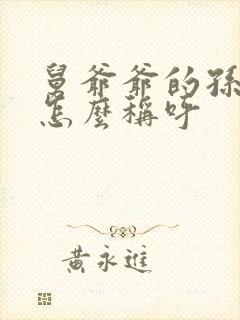 舅爺爺的孫
怎麼稱呼
黃永進